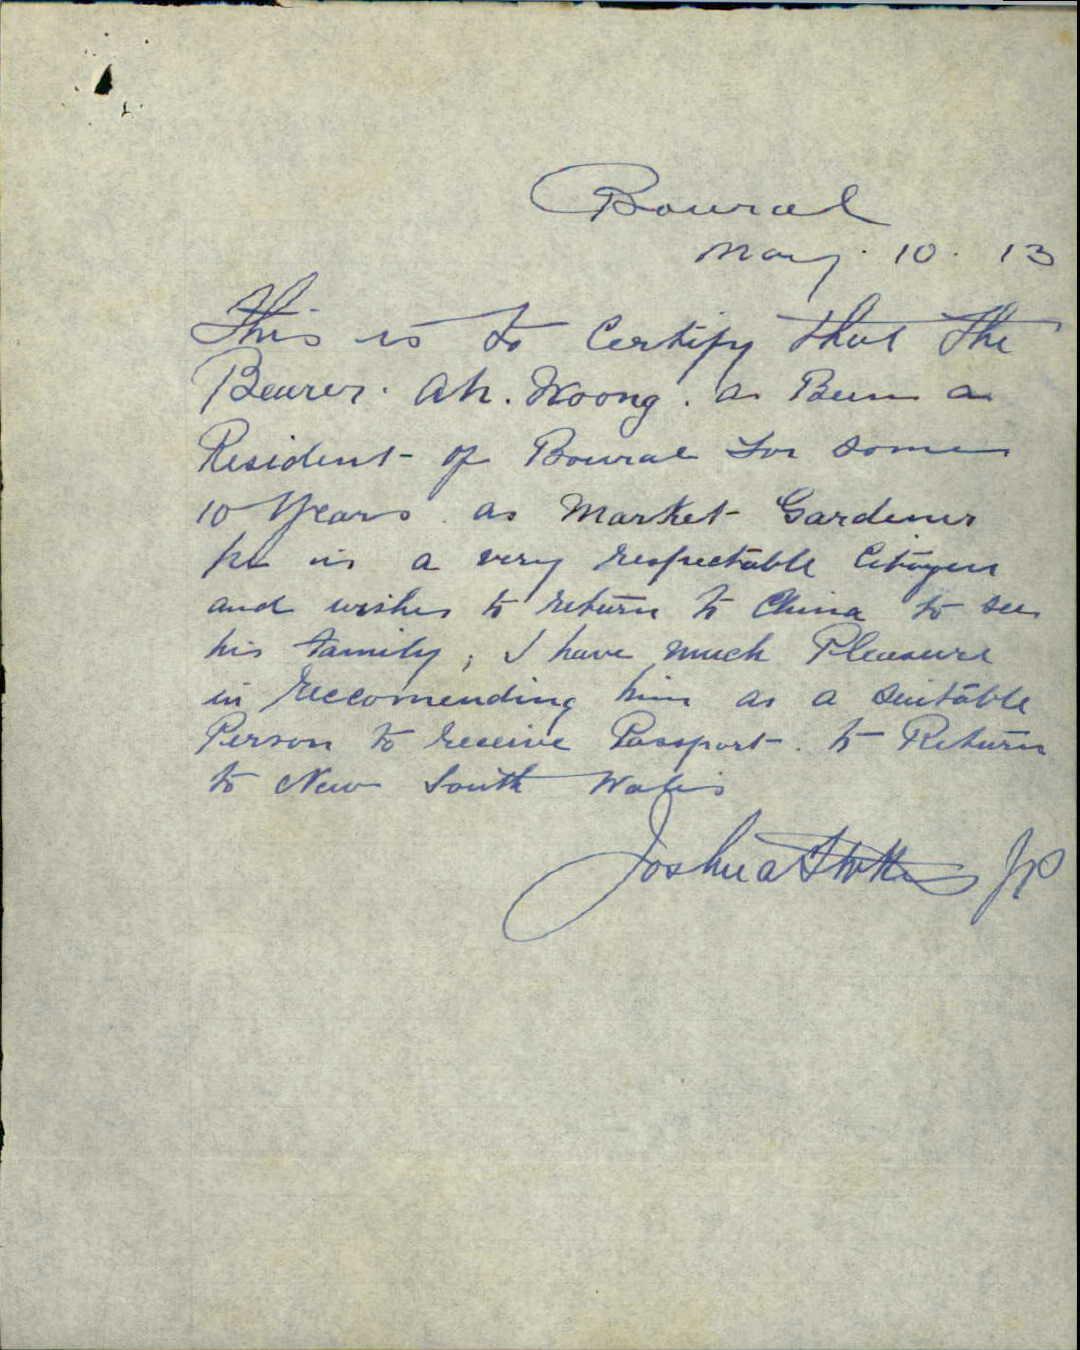 Bowral
May. 10. 13
This is to Certify that the
Bearer. Ah. Woong. as Been a
Resident of Bowral for some
10 Years. as Market Gardener
he is a very respectable Citizen
and wishes to return to China to see
his family; I have much Pleasure
in reccomending him as a suitable
Person to receive Passport. to Return
to New South Wales
Joshua Stokes JP